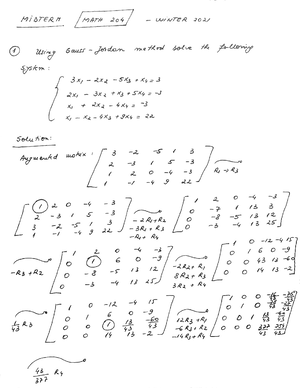 MIDTERM MATH 204 - WINTER 2021
① Using Gauss-Jordan method solve the following
system:
3x₁ - 2x₂ - 5x₃ + x₄ = 3
2x₁ - 3x₂ + x₃ + 5x₄ = -3
x₁ + 2x₂ - 4x₄ = -3
x₁ - x₂ - 4x₃ + 9x₄ = 22
Solution:
Augmented matrix:
3 -2 -5 1 3
2 -3 1 5 -3
1 2 0 -4 -3
1 -1 -4 9 22
R₁↔R₃
1 2 0 -4 -3
2 -3 1 5 -3
3 -2 -5 1 3
1 -1 -4 9 22
-2R₁+R₂
-3R₁+R₃
-R₁+R₄
1 2 0 -4 -3
0 -7 1 13 3
0 -8 -5 13 12
0 -3 -4 13 25
-R₃+R₂
1 2 0 -4 -3
0 1 6 0 -9
0 -8 -5 13 12
0 -3 -4 13 25
-2R₂+R₁
8R₂+R₃
3R₂+R₄
1 0 -12 -4 15
0 1 6 0 -9
0 0 43 13 -60
0 0 14 13 -2
1/43 R₃
1 0 -12 -4 15
0 1 6 0 -9
0 0 1 13/43 -60/43
0 0 14 13 -2
12R₃+R₁
-6R₃+R₂
-14R₃+R₄
43/377 R₄